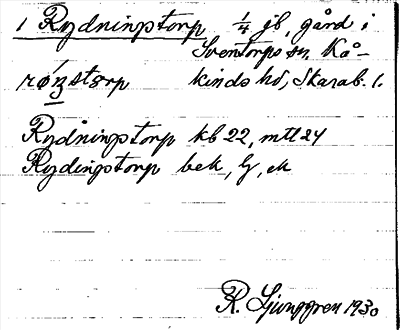 1 Rydningstorp 1/4 jb, gård i
Sventorps sn, Kå-
kinds hd, Skarab. l.
Rydningstorp kb 22, mtl 24
Rydingstorp bek, G, eK
K. Ljunggren 1930